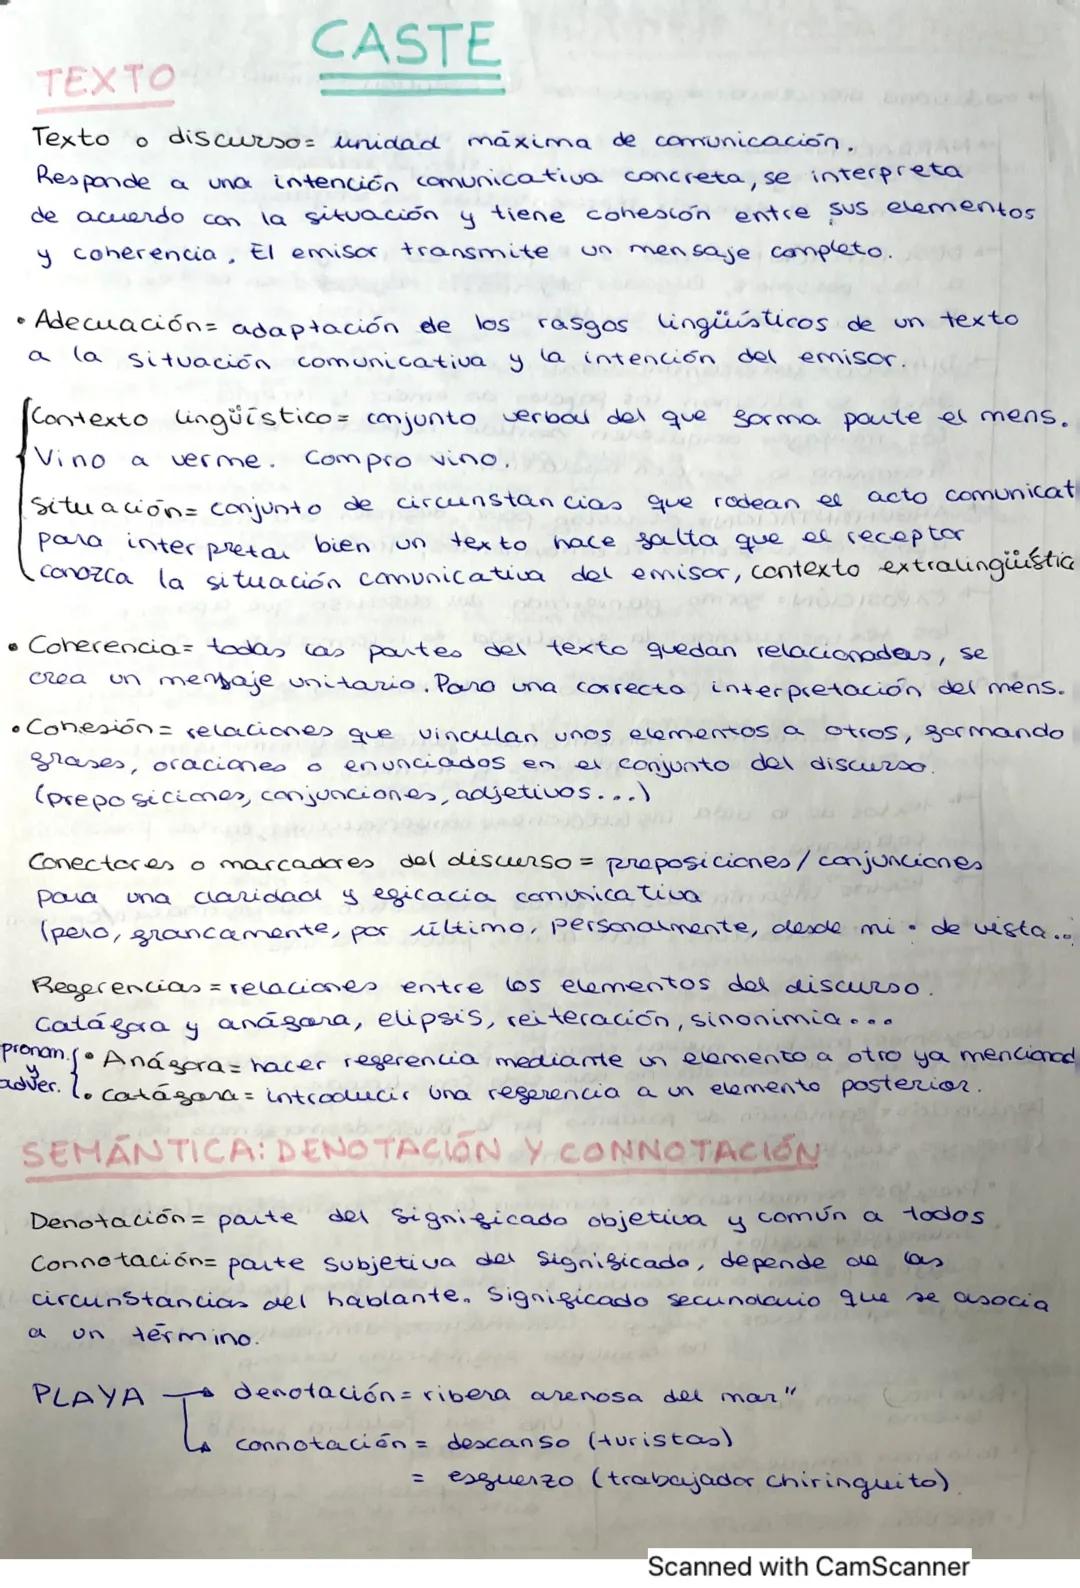 CASTE
TEXTO
Texto o discurso= unidad máxima de comunicación.
Responde a una intención comunicativa concreta, se interpreta
de acuerdo con la situación y tiene cohesión entre sus elementos
y coherencia. El emisor transmite un mensaje completo.
• Adecuación= adaptación de los rasgos lingüísticos de un texto
a la situación comunicativa y la intención del emisor.
Contexto lingüístico= conjunto verbal del que forma parte el mens.
Vino a verme. Compro vino.
Situación= conjunto de circunstancias que rodean el acto comunicat
para interpretar bien un texto hace falta que el receptor
conozca la situación comunicativa del emisor, contexto extralingüístic
• Coherencia= todas las partes del texto quedan relacionadas, se
crea un mensaje unitario. Para una correcta interpretación del mens.
• Cohesión= relaciones que vinculan unos elementos a otros, formando
frases, oraciones o enunciados en el conjunto del discurso.
(preposiciones, conjunciones, adjetivos...)
Conectores o marcadores del discurso= preposiciones/conjunciones
para una claridad y eficacia comunicativa
(pero, francamente, por último, personalmente, desde mi • de vista...
Referencias= relaciones entre los elementos del discurso.
Catáfora y anáfora, elipsis, reiteración, sinonimia...
pronom. y adver.
• Anáfora= hacer referencia mediante un elemento a otro ya mencionad
• catáfora= introducir una referencia a un elemento posterior.
SEMÁNTICA: DENOTACIÓN Y CONNOTACIÓN
Denotación= parte del significado objetiva y común a todos
Connotación= parte subjetiva del significado, depende de las
circunstancias del hablante. Significado secundario que se asocia
a un término.
PLAYA → denotación= ribera arenosa del mar"
↳ connotación= descanso (turistas)
= esfuerzo (trabajador chiringuito)
Scanned with CamScanner